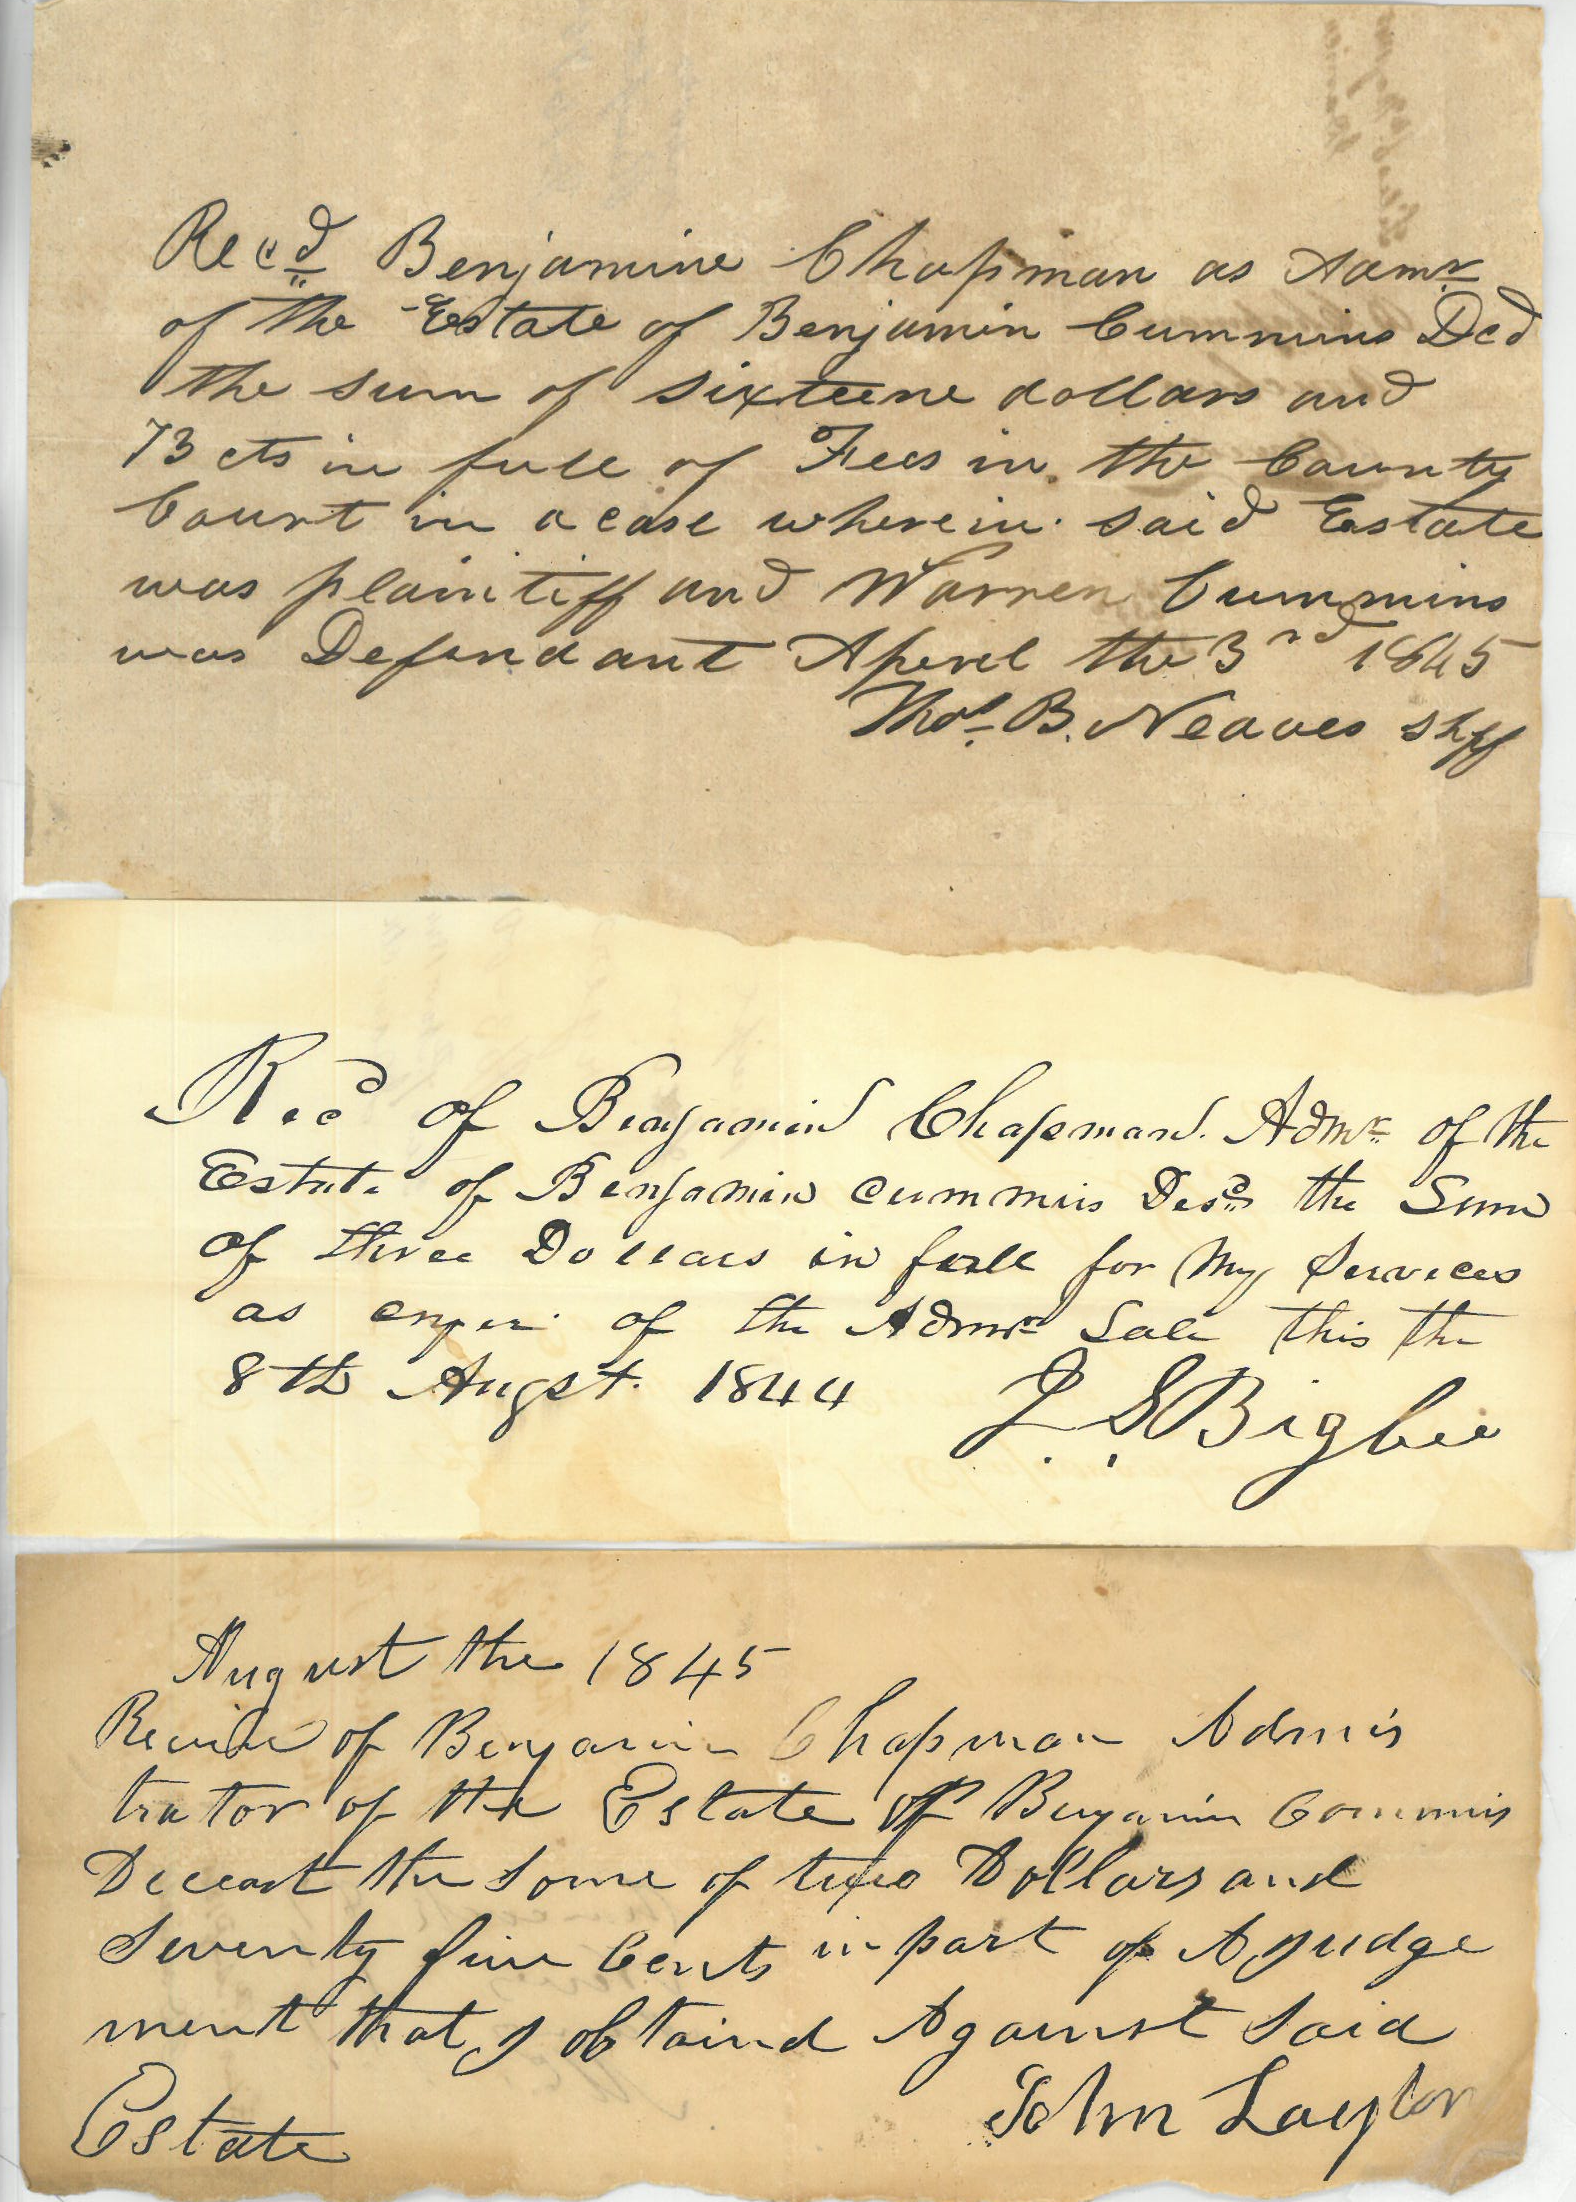 Recd Benjamine Chapman as Admr
of the Estate of Benjamin Cummins Dcd
the sum of sixteene dollars and
73 cts in full of Fees in the County
Court in a case wherein said Estate
was plaintiff and Warren Cummins
was Defendant Aperel the 3rd 1845
Thos. B. Neaves Shff
Recd of Benjamin Chapman. Admr of the
Estate of Benjamin Cummins Desd the Sum
of three Dollars in full for My Services
as of the Admrs Sale this the
8th Augst. 1844
J. S. Bigbee
August the 1845
of Benjamin Chapman Adminis
trator of the Estate of Benjamin Commins
Deceast the some of two Dollars and
Seventy five Cents in part of A Judge
ment that I obtaind Against Said
Estate
John Laylor